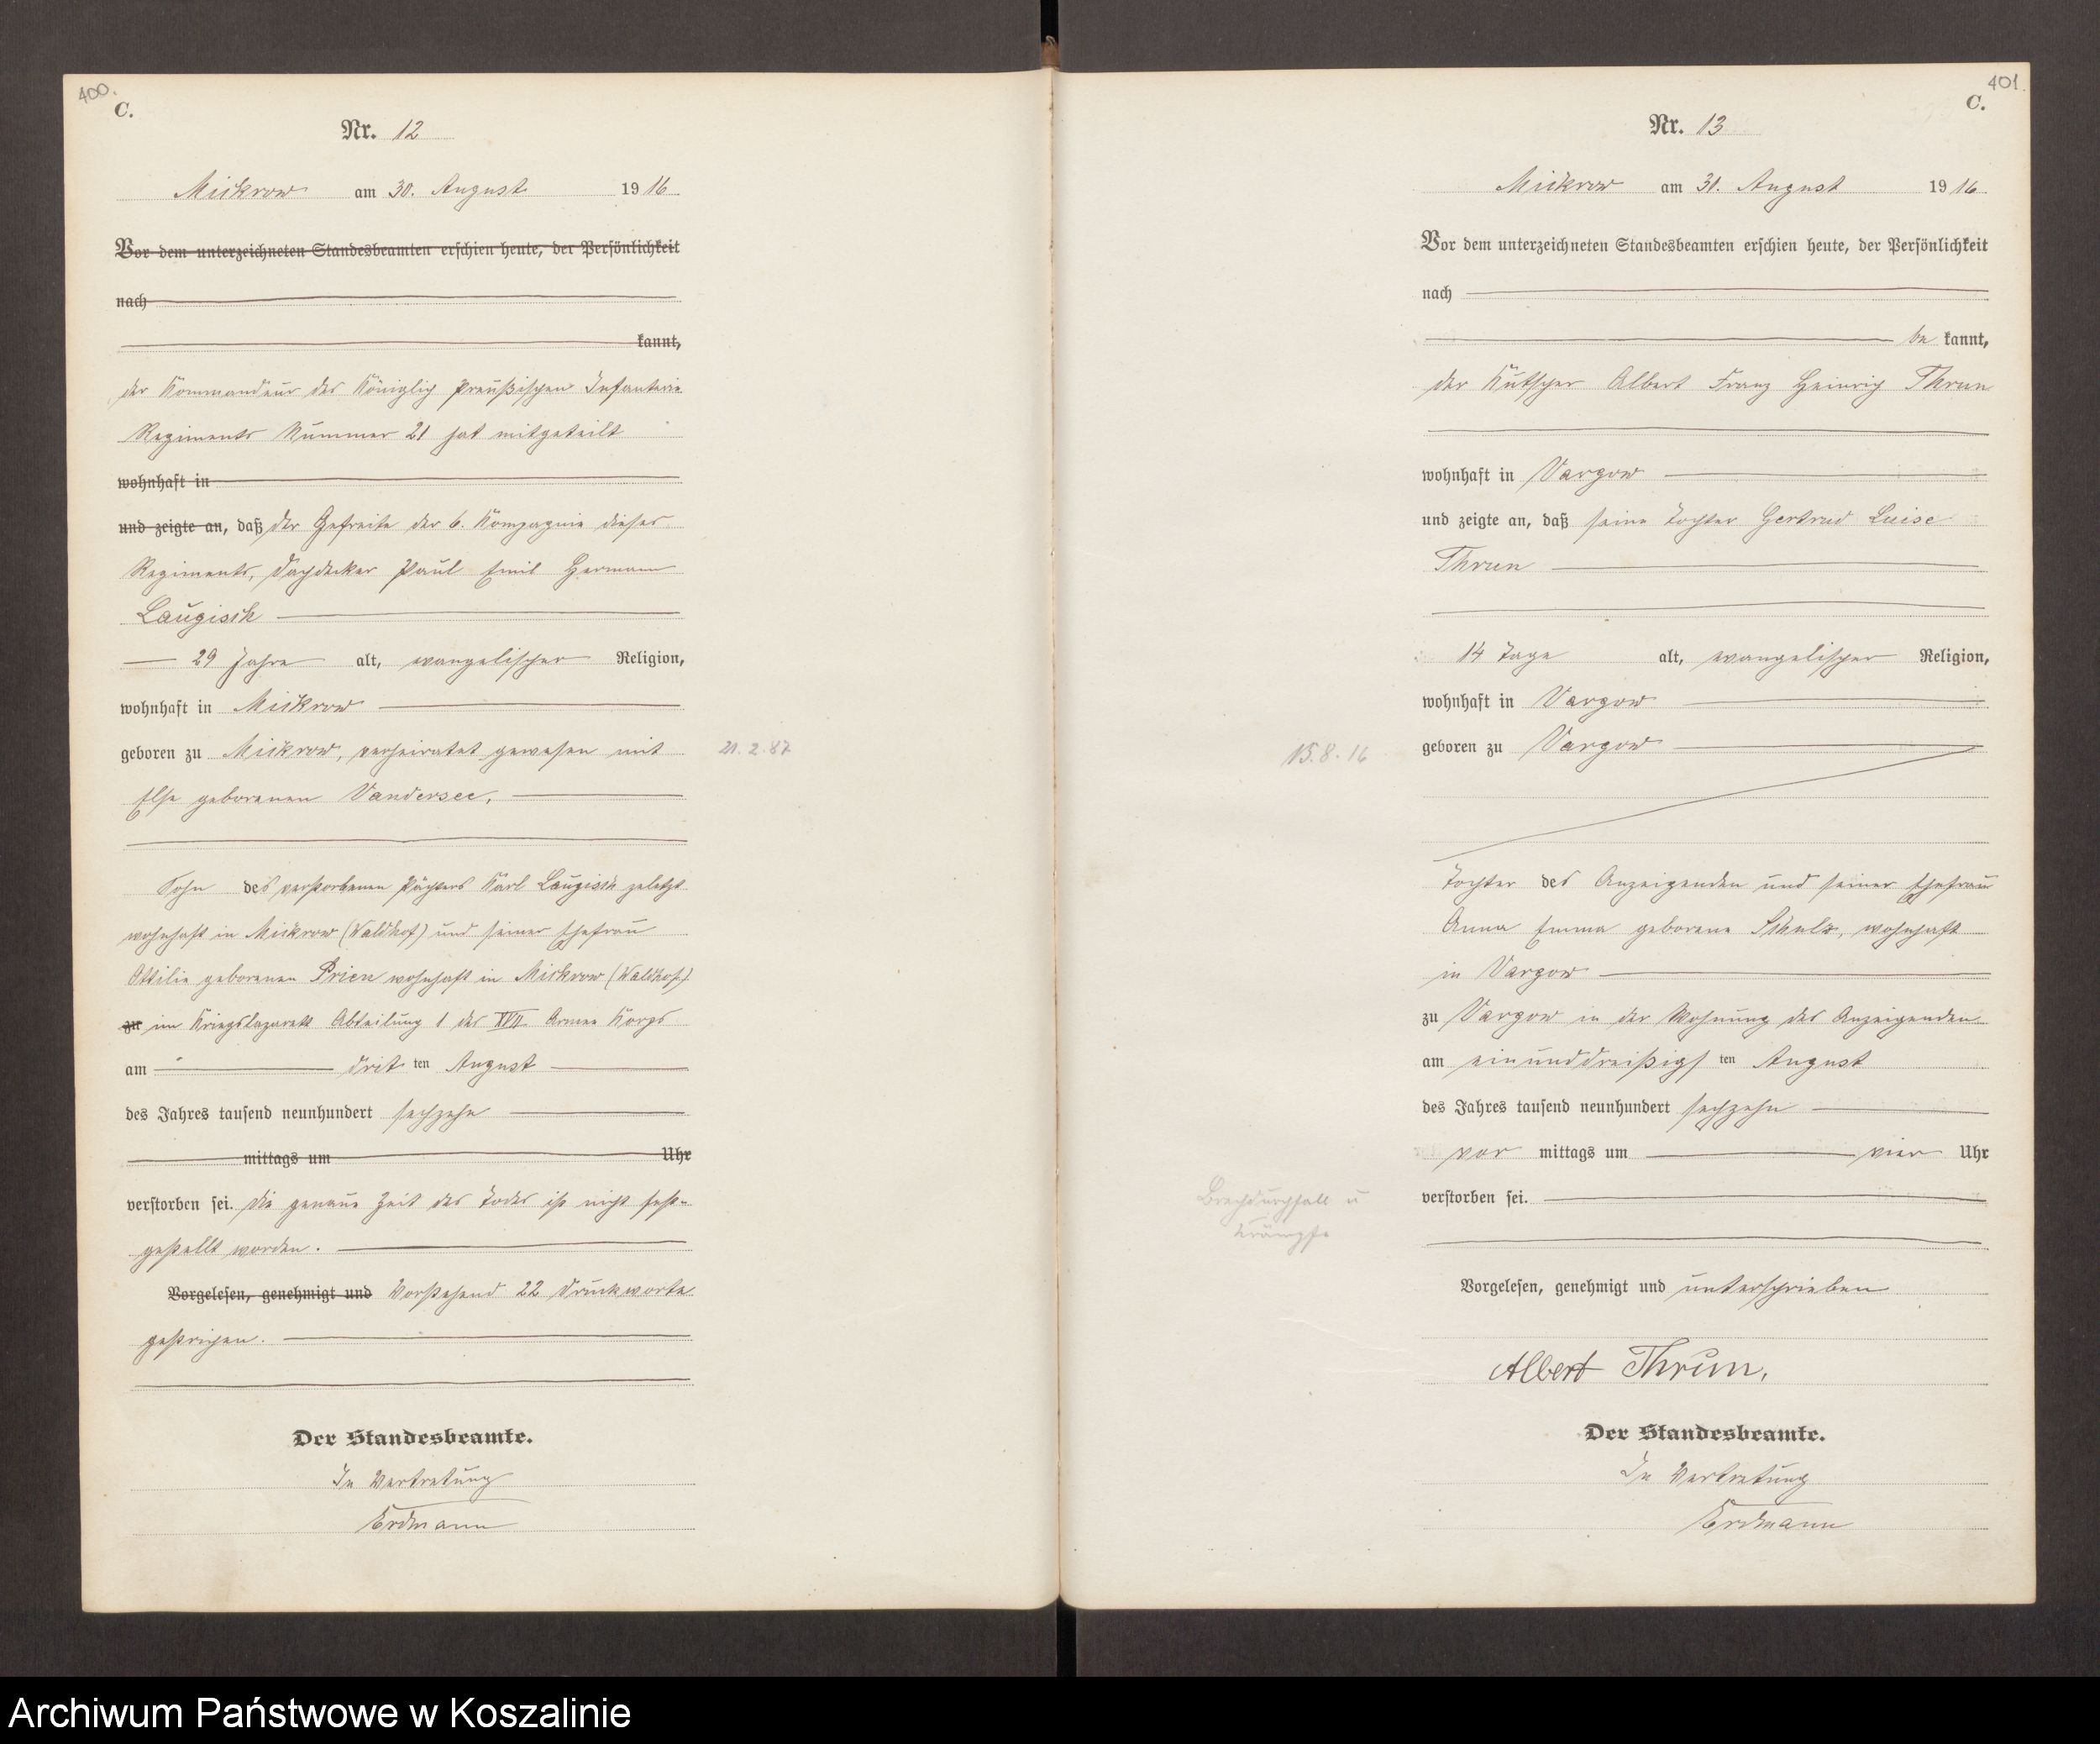 400.
C.
Nr. 12
Mickrow am 30. August 1916
Vor dem unterzeichneten Standesbeamten erschien heute, der Persönlichkeit
nach
kannt,
der Kommandeur des Königlich Preußischen Infanterie
Regiments Nummer 21 hat mitgeteilt
wohnhaft in
und zeigte an, daß der Gefreite der 6. Kompagnie dieses
Regiments, Dachdecker Paul Emil Hermann
Laugisch
29 Jahre alt, evangelischer Religion,
wohnhaft in Mickrow
geboren zu Mickrow, verheiratet gewesen mit
21.2.87
Else geborenen Vandersee,
Sohn des verstorbenen Pächters Karl Laugisch zuletzt
wohnhaft in Mickrow (Waldhof) und seiner Ehefrau
Ottilie geborenen Prien wohnhaft in Mickrow (Waldhof)
zu im Kriegslazarett Abteilung 1 des XVII Armee Korps
am dritten August
des Jahres tausend neunhundert sechzehn
mittags um Uhr
verstorben sei. Die genaue Zeit des Todes ist nicht fest-
gestellt worden.
Vorgelesen, genehmigt und Vorstehend 22 Druckworte
gestrichen.
Der Standesbeamte.
In Vertretung
Erdmann
401
C.
Nr. 13
Mickrow am 31. August 1916
Vor dem unterzeichneten Standesbeamten erschien heute, der Persönlichkeit
nach
be kannt,
der Kutscher Albert Franz Heinrich Thrun
wohnhaft in Vargow
und zeigte an, daß seine Tochter Gertrud Luise
Thrun
14 Tage alt, evangelischer Religion,
wohnhaft in Vargow
15.8.16
geboren zu Vargow
Tochter des Anzeigenden und seiner Ehefrau
Anna Emma geborene Schulz, wohnhaft
in Vargow
zu Vargow in der Wohnung des Anzeigenden
am einunddreißigsten August
des Jahres tausend neunhundert sechzehn
vor mittags um vier Uhr
Brechdurchfall u
Krämpfe
verstorben sei.
Vorgelesen, genehmigt und unterschrieben
Albert Thrun.
Der Standesbeamte.
In Vertretung
Erdmann
Archiwum Państwowe w Koszalinie